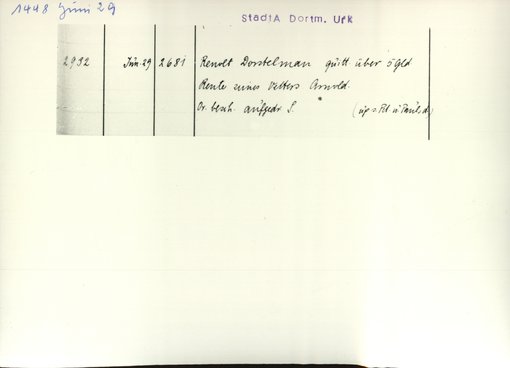 1448 Juni 29
StadtA Dortm. Urk
2932 Jun. 29 2681 Renolt Dorstelman quitt über 5 Gld
Rente seines Vetters Arnold.
Or. besch. aufgedr S. (up s. Pet u Pauls d.)